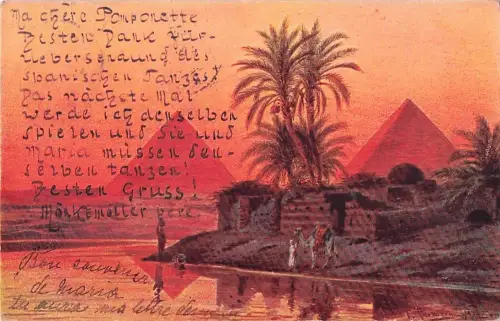 Ma chère Pomponette
Besten Dank für
Uebersendung des
spanischen Tanzes!
Das nächste Mal
werde ich denselben
spielen und Sie und
Maria müssen den-
selben tanzen!
Besten Gruss!
Mönkemöller père.
Bon souvenir
de Maria
tu auras ma lettre demain